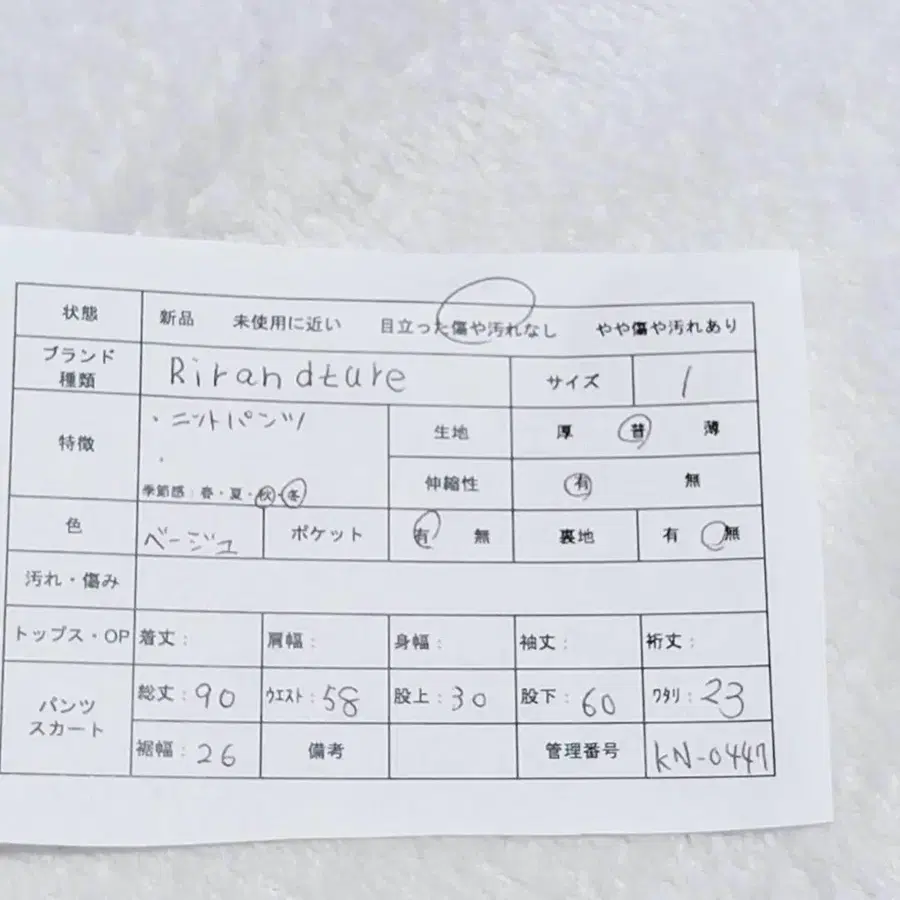 状態 新品 未使用に近い 目立った傷や汚れなし やや傷や汚れあり
ブランド 種類 Rirandture サイズ 1
特徴 ・ニットパンツ 生地 厚 普 薄
・
季節感：春・夏・秋・冬 伸縮性 有 無
色 ベージュ ポケット 有 無 裏地 有 無
汚れ・傷み
トップス・OP 着丈： 肩幅： 身幅： 袖丈： 裄丈：
パンツ スカート 総丈：90 ウエスト：58 股上：30 股下：60 ワタリ：23
裾幅：26 備考 管理番号 KN-0447